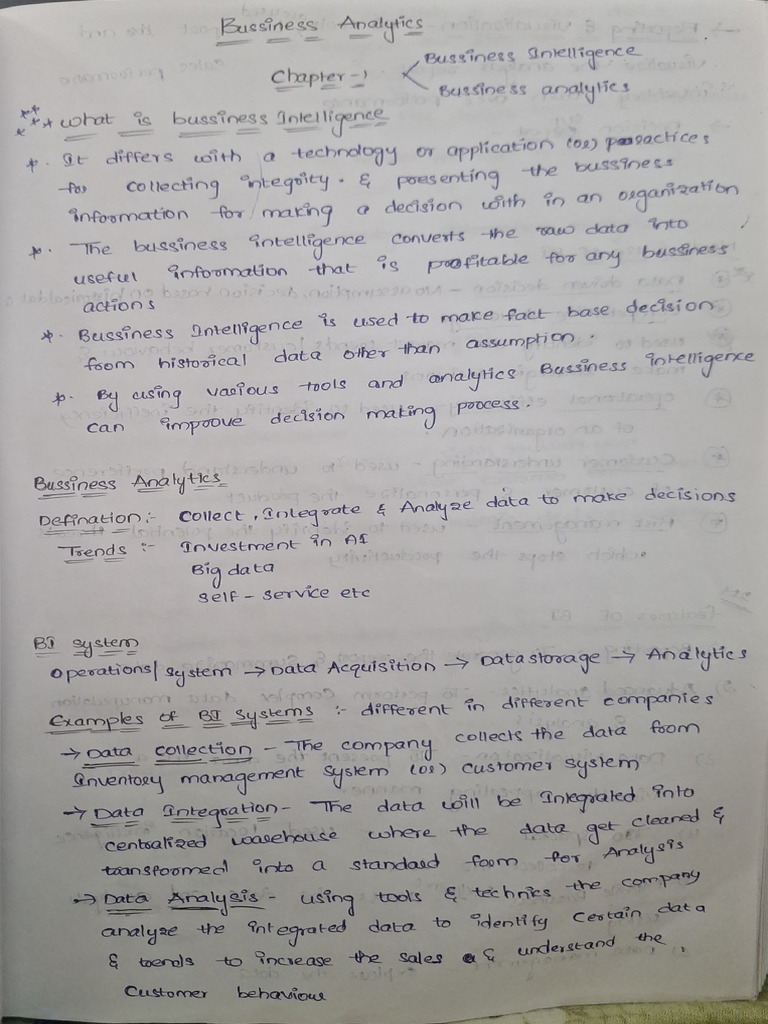 Bussiness Analytics
Chapter-1
Bussiness Intelligence
Bussiness analytics
*** what is bussiness Intelligence
*. It differs with a technology or application (or) practices
for collecting integrity. & presenting the bussiness
information for making a decision with in an organization
*. The bussiness intelligence converts the raw data into
useful information that is profitable for any bussiness
actions
*. Bussiness Intelligence is used to make fact base decision
from historical data other than assumption.
*. By using various tools and analytics Bussiness intelligence
can improve decision making process.
Bussiness Analytics
Defination:- Collect, Integrate & Analyze data to make decisions
Trends :- Investment in AI
Big data
Self - service etc
BI system
Operations/system → Data Acquisition → Data storage → Analytics
Examples of BI Systems :- different in different companies
→ Data collection - The company collects the data from
Inventory management system (or) customer system
→ Data Integration - The data will be Integrated into
centralized warehouse where the data get cleaned &
transformed into a standard form for Analysis
→ Data Analysis - using tools & technics the company
analyze the integrated data to identify certain data
& trends to increase the sales & understand the
Customer behaviour